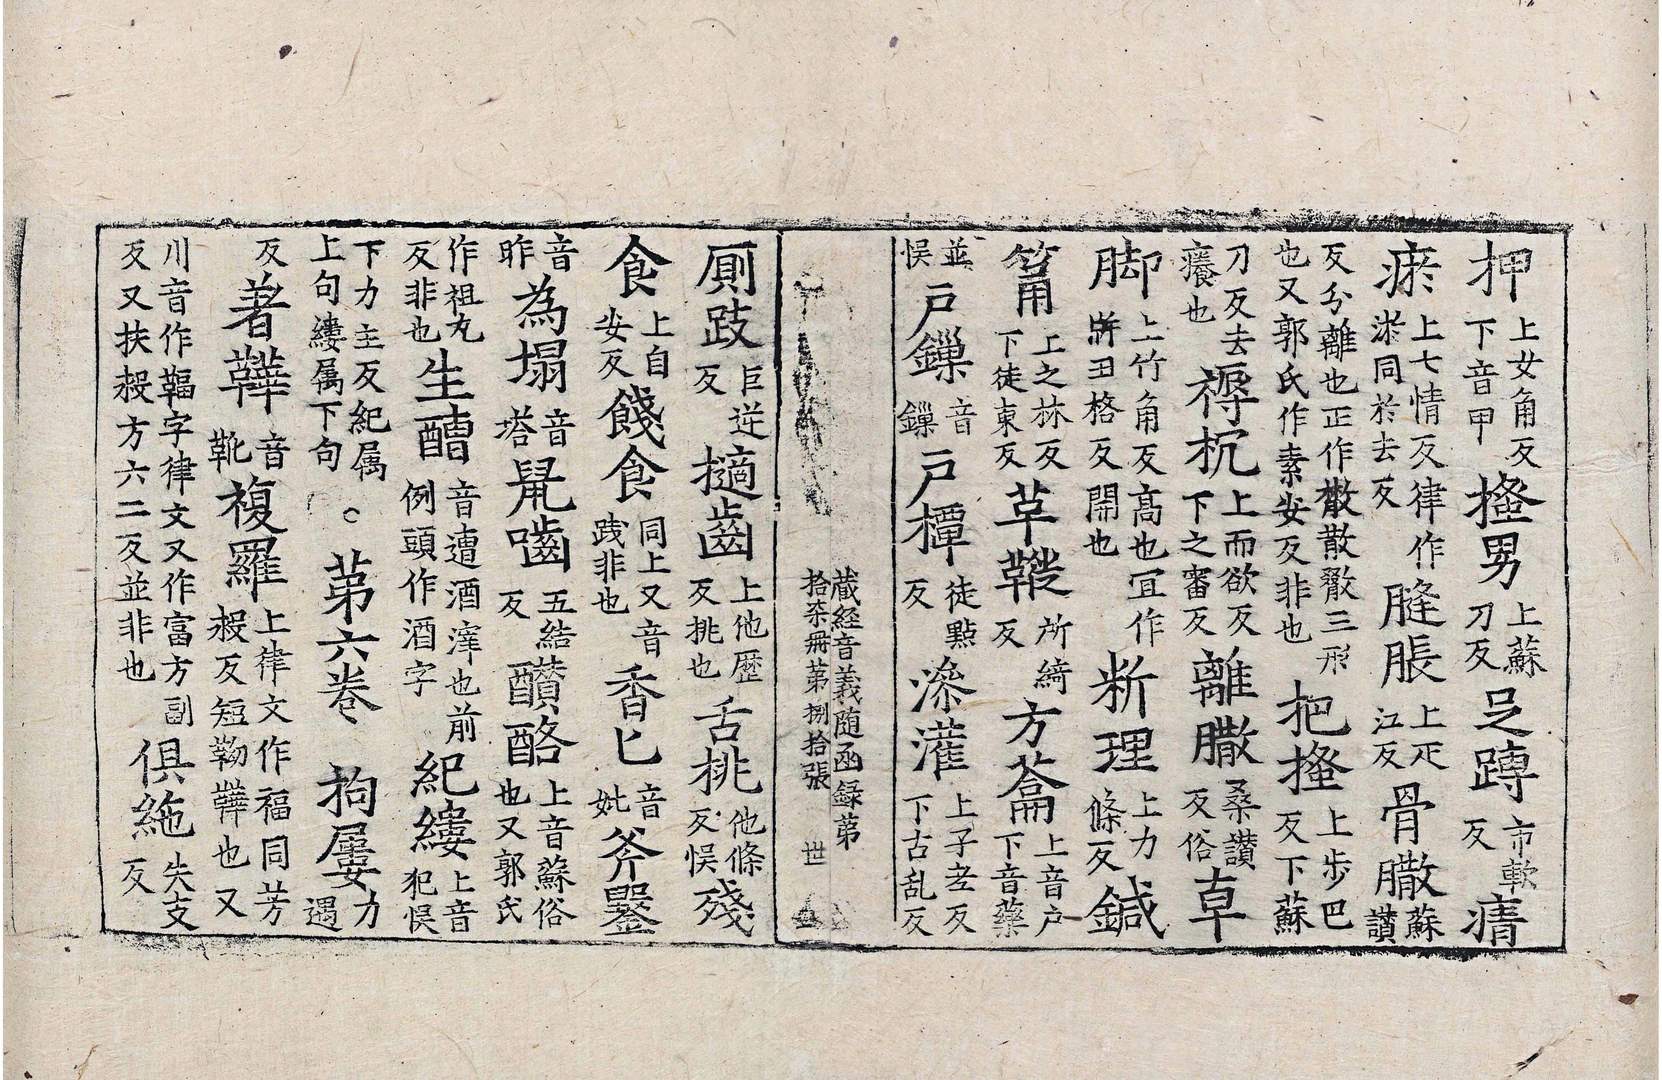 押上女角反下音甲搔男上蘇刀反足蹲市軟反瘄
瘀上七情反律作淤同於去反膖脹上疋江反骨䐿蘇讃
反分離也正作㪔散㪚三形也又郭氏作素安反非也把搔上步巴反下蘇
刀反去癢也褥枕上而欲反下之審反離䐿桑讃反俗草
脚上竹角反高也冝作𣃁丑格反開也斯理上力條反鍼
筩上之林反下徒東反草鞵所綺反方蘥上音戸下音藥
並悮戸鏁音鏁戸橝徒㸃反澡灌上子老反下古乱反
蔵經音義随函録苐拾柒冊苐捌拾張 世
厠跂巨逆反擿齒上他歴反挑也舌挑他條反悮殘
食上自安反餞食同上又音踐非也香匕音妣斧鑿
音昨為塌音塔鼠嚙五結反䤛酪上音蘇俗也又郭氏
作祖丸反非也生醩音遭酒滓也前例頭作酒字紀縷上音犯悮
下力主反紀属上句縷属下句。苐六巻 拘屢力遇
反著鞾音靴複羅上律文作福同芳菽反短靿鞾也又
川音作鞴字律文又作富方副反又扶菽方六二反並非也俱絁失支反